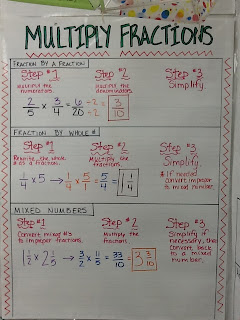 MULTIPLY FRACTIONS
FRACTION BY A FRACTION
Step #1 Step #2 Step #3
Multiply the numerators. Multiply the denominators. Simplify
2/5 × 3/4 = 6/20 ÷2 ÷2 = 3/10
FRACTION BY WHOLE #
Step #1 Step #2 Step #3
Rewrite the whole # as a fraction. Multiply the fractions. Simplify.
* If needed convert improper to mixed number.
1/4 × 5 → 1/4 × 5/1 = 5/4 = 1 1/4
MIXED NUMBERS
Step #1 Step #2 Step #3
Convert mixed #s to improper fractions. Multiply the fractions. Simplify if necessary, then convert back to a mixed number.
1 1/2 × 2 1/5 → 3/2 × 11/5 = 33/10 = 3 3/10